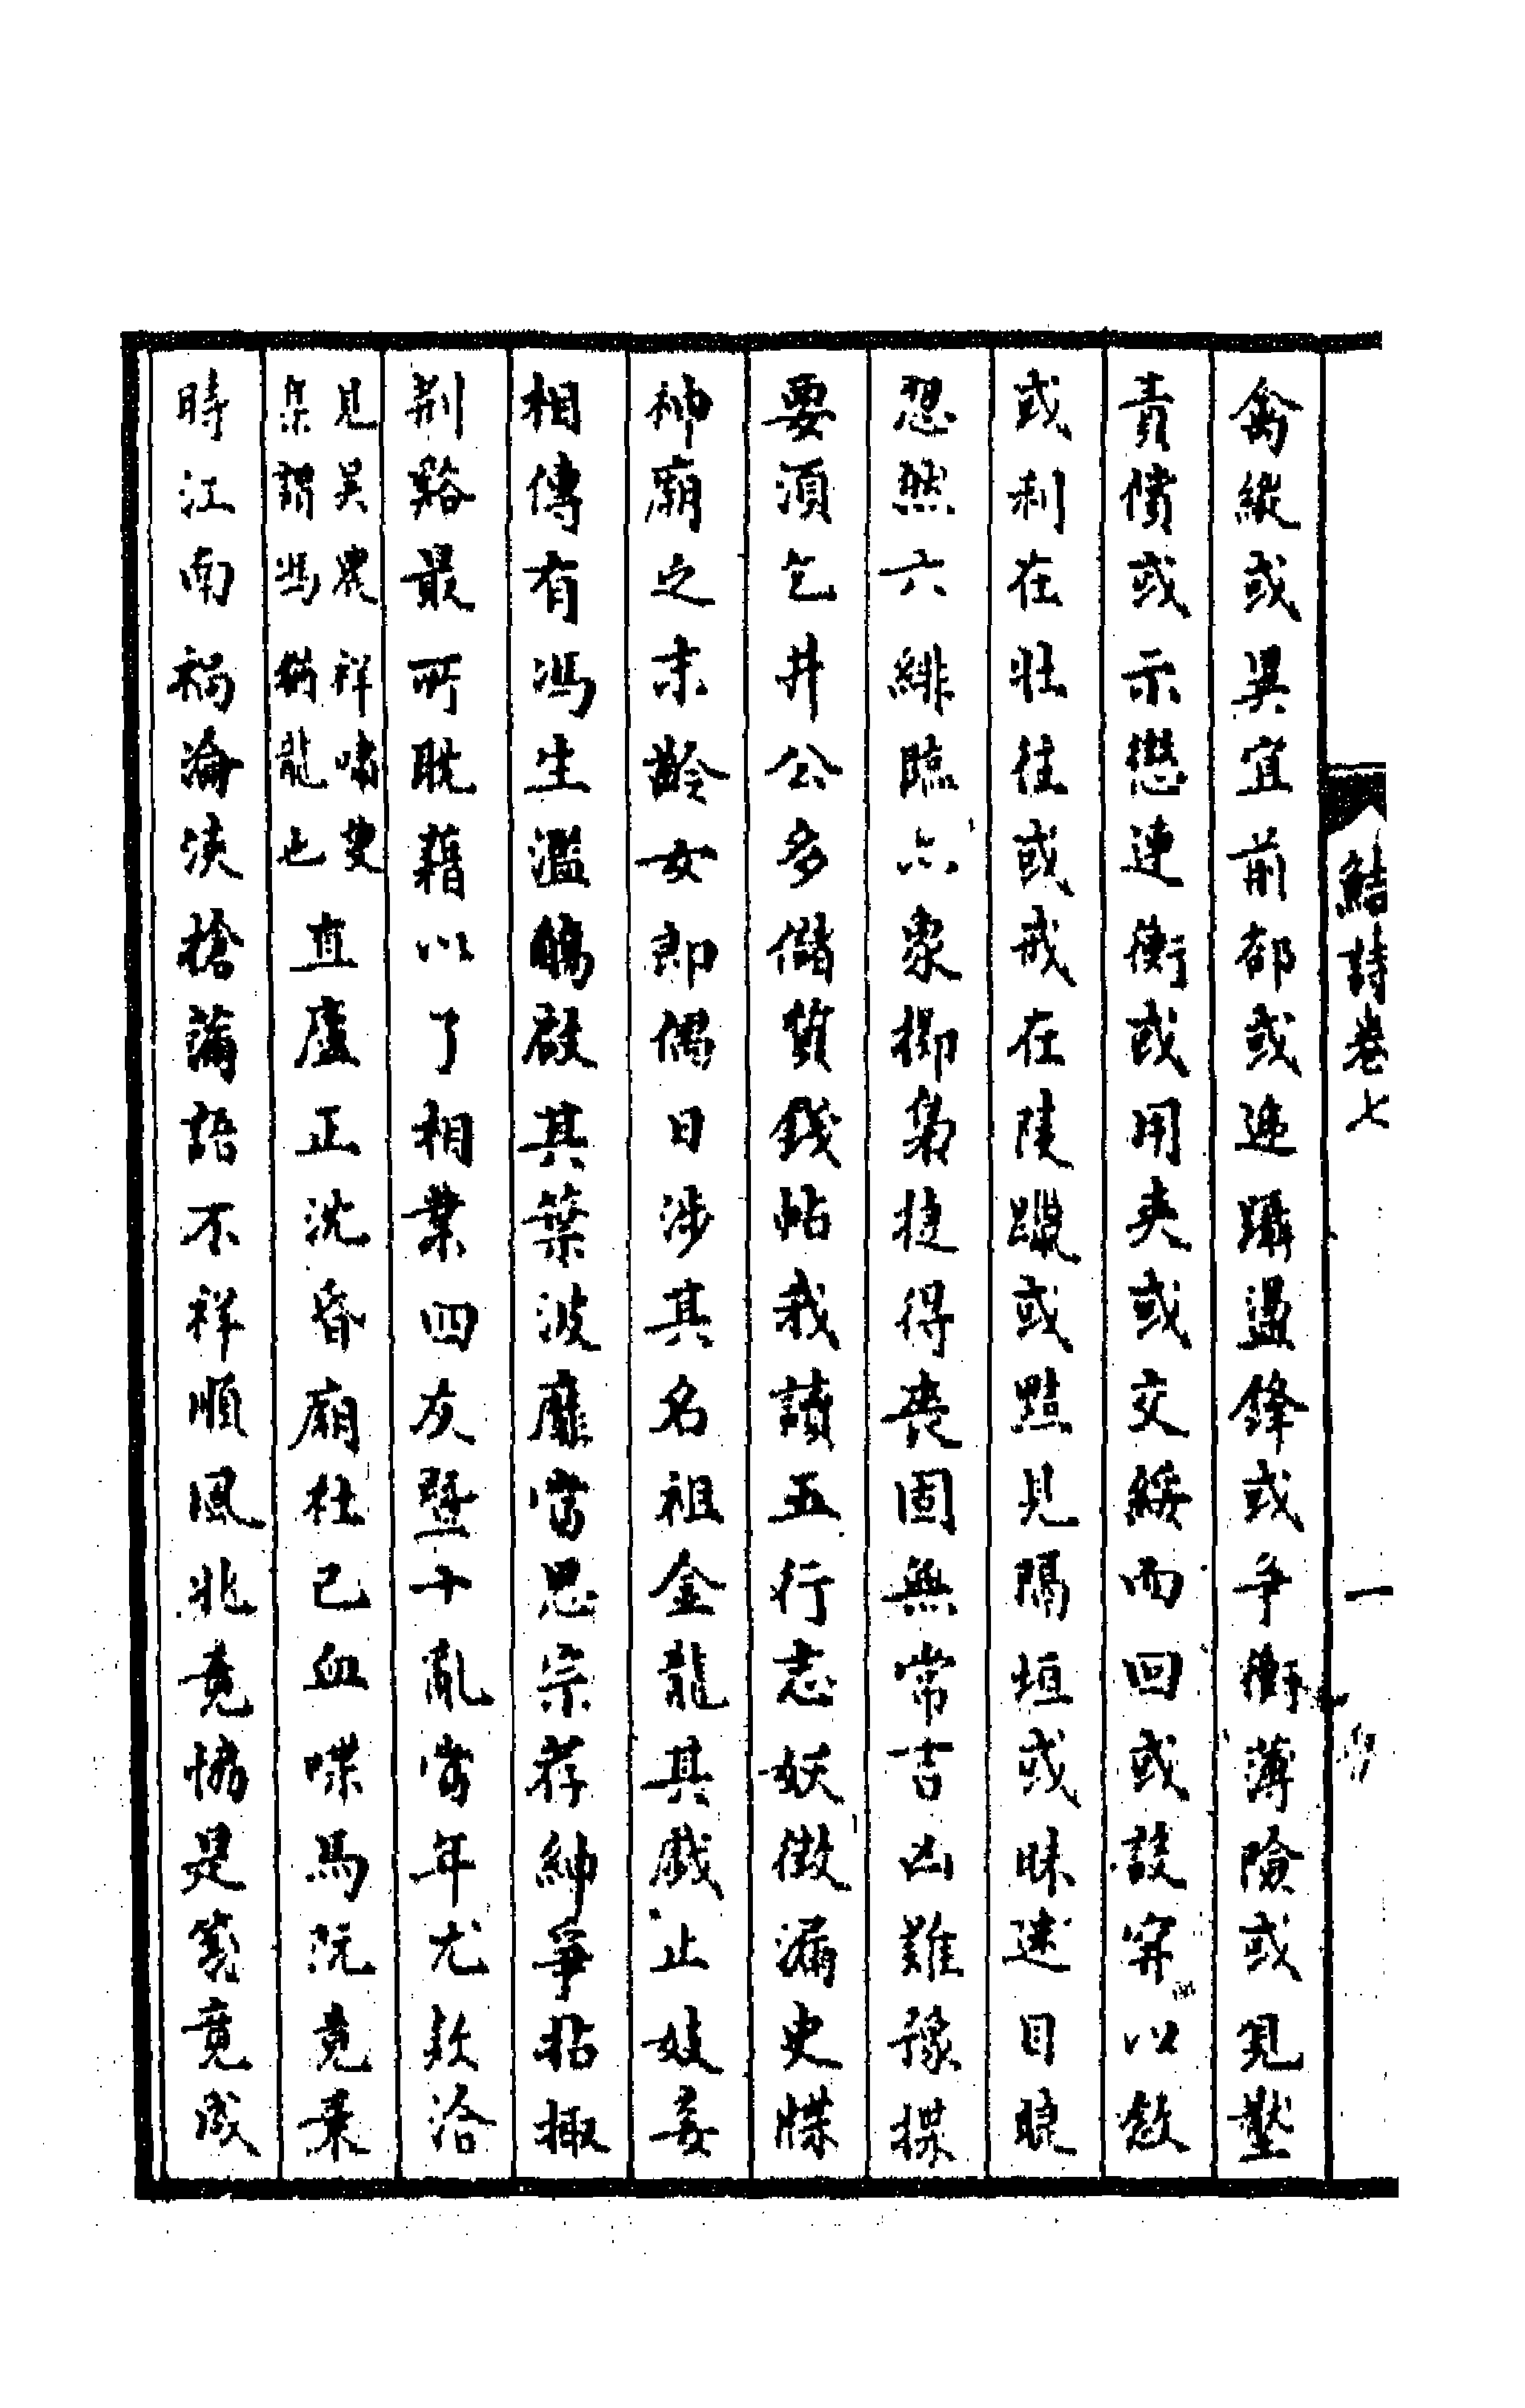 禽縱或異宜前却或进躡盪鋒或爭衡薄險或見塹
責償或示懲連衡或用夾或交綏而回或設穽以敓
或利在壯往或戒在陵躐或點見隔垣或昧迷目睫
忽然六緋臨六衆抑梟捷得喪固無常吉凶難豫揲
要須乞井公多儲貨錢帖我讀五行志妖徵漏史牒
神廟之末齡女即偶日涉其名祖金龍其戲止妓妾
相傳有馮生濫觴啟其葉波靡當思宗荐紳爭拈撖
荆谿最所耽藉以了相業四友暨十亂當年尤款洽
見吳農祥嘯叟
集謂馮猶龍也
直廬正沈昏廟社已血喋馬阮竟秉
時江南禍淪浹搶蒲語不祥順風兆竟恊是竟成
鮚詩卷七
一